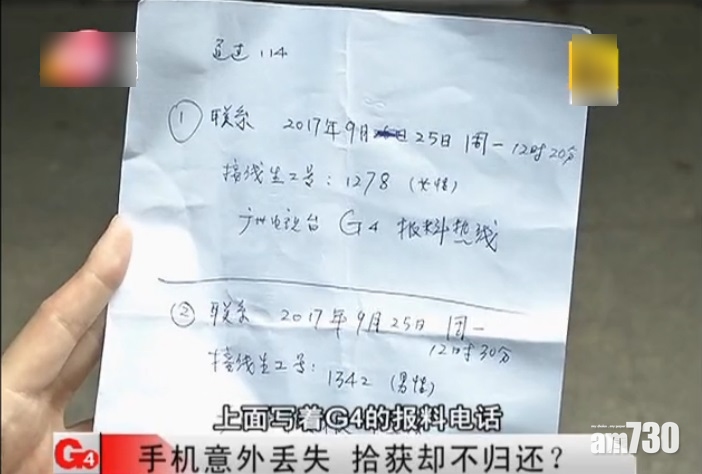 通过 114
① 联系 2017年9月 25日 周一 12时20分
接线生工号：1278 (女性)
广州电视台 G4 报料热线
② 联系 2017年9月25日 周一
12时30分
接线生工号：1342 (男性)
上面写着G4的报料电话
G4 手机意外丢失 拾获却不归还？
am730